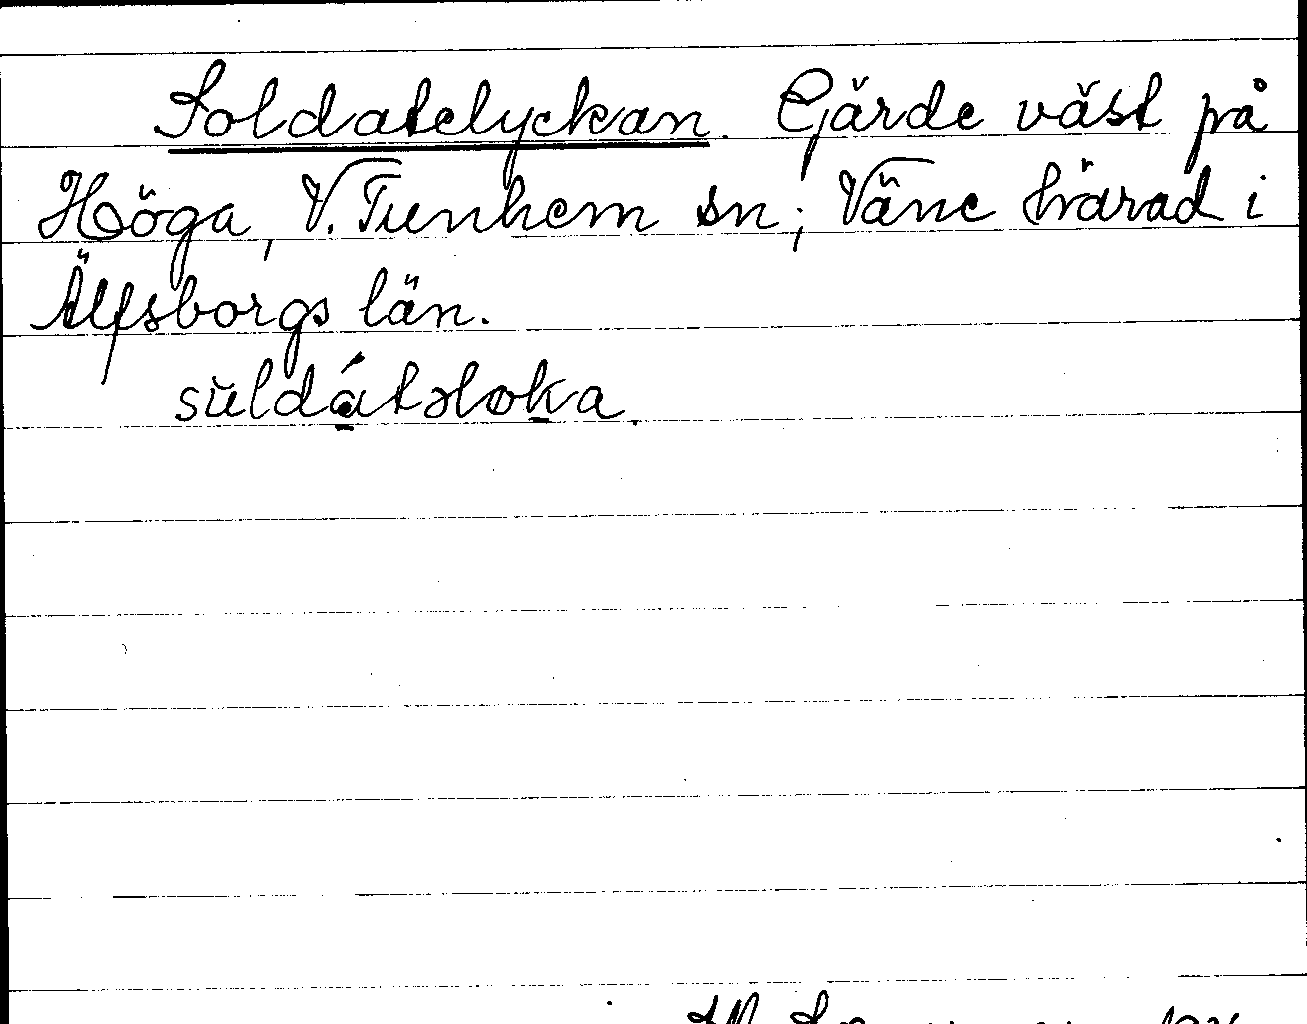 Soldatelyckan. Gärde väst på
Höga, V. Tunhem sn; Väne härad i
Älfsborgs län.
sŭldátəloka.